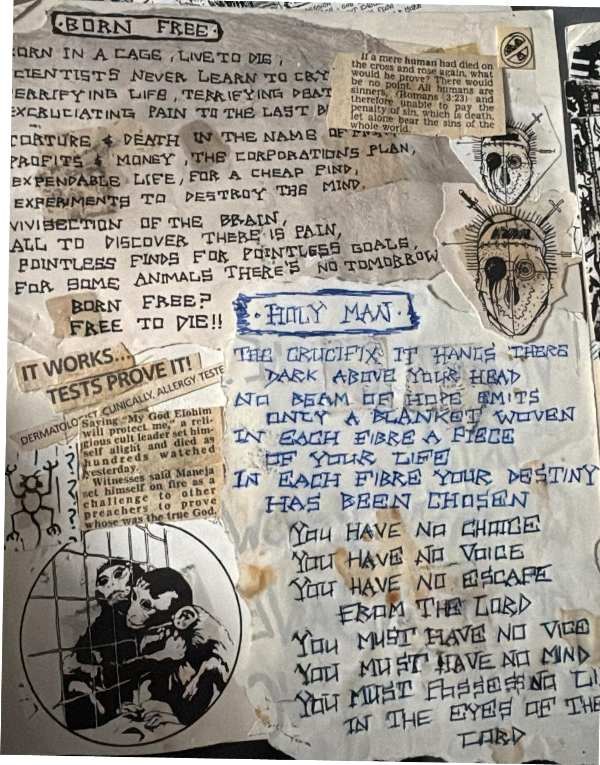 BORN FREE
ORN IN A CAGE, LIVE TO DIE,
CIENTISTS NEVER LEARN TO CRY
ERRIFYING LIFE, TERRIFYING DEAT
EXCRUCIATING PAIN TO THE LAST B
TORTURE & DEATH IN THE NAME OF
PROFITS & MONEY, THE CORPORATIONS PLAN,
EXPENDABLE LIFE, FOR A CHEAP FIND,
EXPERIMENTS TO DESTROY THE MIND.
VIVISECTION OF THE BRAIN,
ALL TO DISCOVER THERE IS PAIN,
POINTLESS FINDS FOR POINTLESS GOALS,
FOR SOME ANIMALS THERE'S NO TOMORROW
BORN FREE?
FREE TO DIE!!
If a mere human had died on
the cross and rose again, what
would he prove? There would
be no point. All humans are
sinners, (Romans 3:23) and
therefore unable to pay the
penalty of sin, which is death,
let alone bear the sins of the
whole world.
HOLY MAN
THE CRUCIFIX IT HANGS THERE
DARK ABOVE YOUR HEAD
NO BEAM OF HOPE EMITS
ONLY A BLANKET WOVEN
IN EACH FIBRE A PIECE
OF YOUR LIFE
IN EACH FIBRE YOUR DESTINY
HAS BEEN CHOSEN
YOU HAVE NO CHOICE
YOU HAVE NO VOICE
YOU HAVE NO ESCAPE
FROM THE LORD
YOU MUST HAVE NO VICE
YOU MUST HAVE NO MIND
YOU MUST POSSESS NO LI
IN THE EYES OF THE
LORD
IT WORKS...
TESTS PROVE IT!
CLINICALLY, ALLERGY TESTE
Saying "My God Elohim
will protect me," a reli-
gious cult leader set him-
self alight and died as
hundreds watched
yesterday.
Witnesses said Maneja
set himself on fire as a
challenge to other
preachers to prove
whose was the true God.